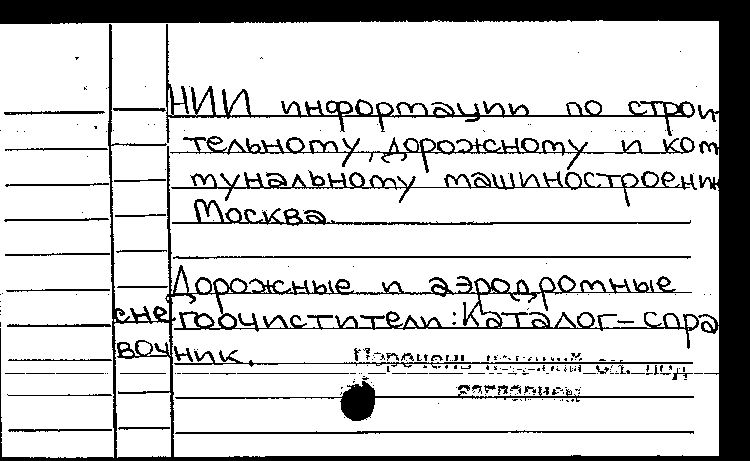 НИИ информации по строи
тельному, дорожному и ком
мунальному машиностроению
Москва.
Дорожные и аэродромные
снегоочистители: Каталог-спра
вочник.
Перечень изданий см. под
заглавием